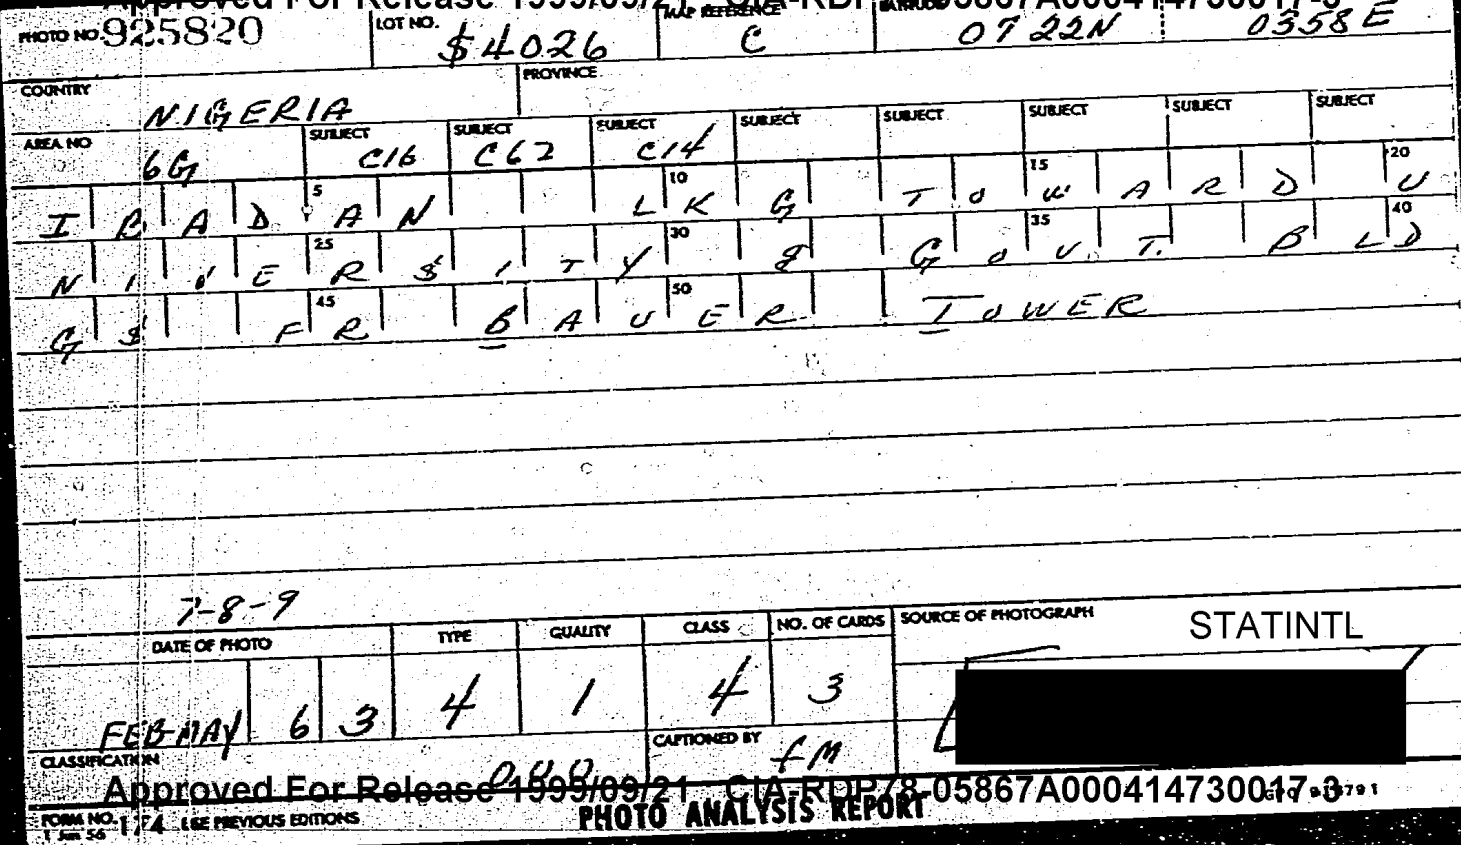 Approved For Release 1999/09/21 CIA-RDP78-05867A000414730017-3
PHOTO NO. 925820 LOT NO. $4026 MAP REFERENCE C LATITUDE 0722N 0358E
COUNTRY NIGERIA PROVINCE
AREA NO 6G SUBJECT C16 SUBJECT C62 SUBJECT C14 SUBJECT SUBJECT SUBJECT SUBJECT SUBJECT
5 10 15 20
IBADAN LKG TOWARD U
25 30 35 40
NIVER$ITY & GOVT. BLD
45 50
G$ FR BAUER TOWER
7-8-9
DATE OF PHOTO TYPE QUALITY CLASS NO. OF CARDS SOURCE OF PHOTOGRAPH STATINTL
FEB-MAY 63 4 1 4 3
CLASSIFICATION CAPTIONED BY fM
Approved For Release 1999/09/21 CIA-RDP78-05867A000414730017-3
FORM NO. 174 USE PREVIOUS EDITIONS PHOTO ANALYSIS REPORT
1 Jun 56